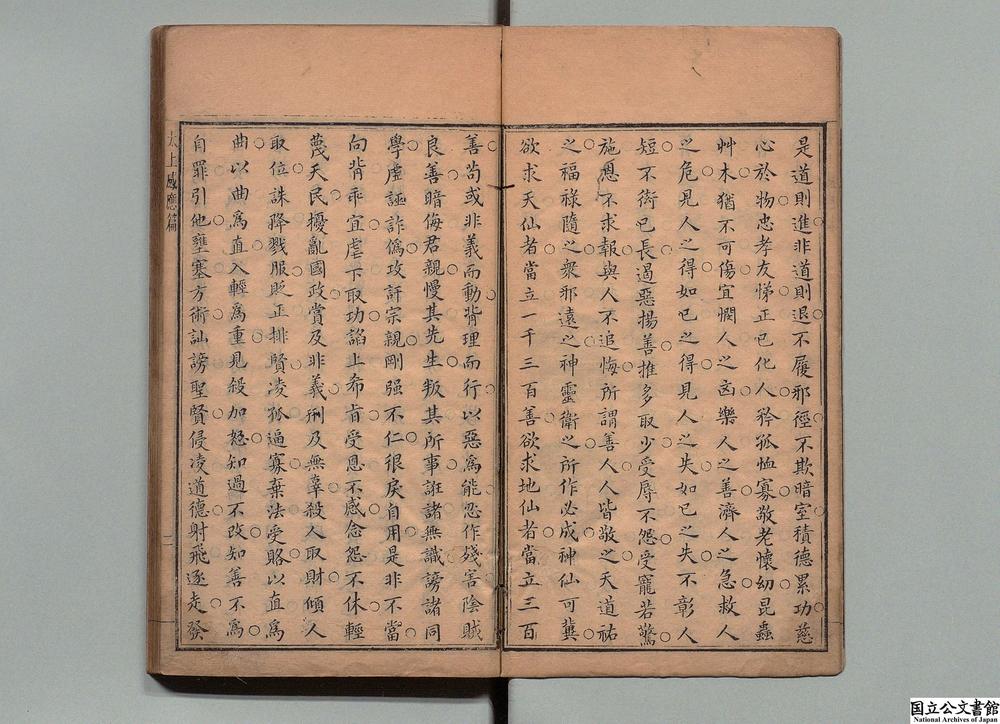 是道則進非道則退不履邪徑不欺暗室積德累功慈
心於物忠孝友悌正己化人矜孤恤寡敬老懷幼昆蟲
艸木猶不可傷宜憫人之凶樂人之善濟人之急救人
之危見人之得如己之得見人之失如己之失不彰人
短不衒己長遏惡揚善推多取少受辱不怨受寵若驚
施恩不求報與人不追悔所謂善人人皆敬之天道祐
之福祿隨之衆邪遠之神靈衛之所作必成神仙可冀
欲求天仙者當立一千三百善欲求地仙者當立三百
善苟或非義而動背理而行以惡爲能忍作殘害陰賊
良善暗侮君親慢其先生叛其所事誑諸無識謗諸同
學虛誣詐僞攻訐宗親剛强不仁很戾自用是非不當
向背乖宜虐下取功諂上希旨受恩不感念怨不休輕
蔑天民擾亂國政賞及非義刑及無辜殺人取財傾人
取位誅降戮服貶正排賢凌孤逼寡棄法受賂以直爲
曲以曲爲直入輕爲重見殺加怒知過不改知善不爲
自罪引他壅塞方術訕謗聖賢侵凌道德射飛逐走發
太上感應篇
二
国立公文書館
National Archives of Japan